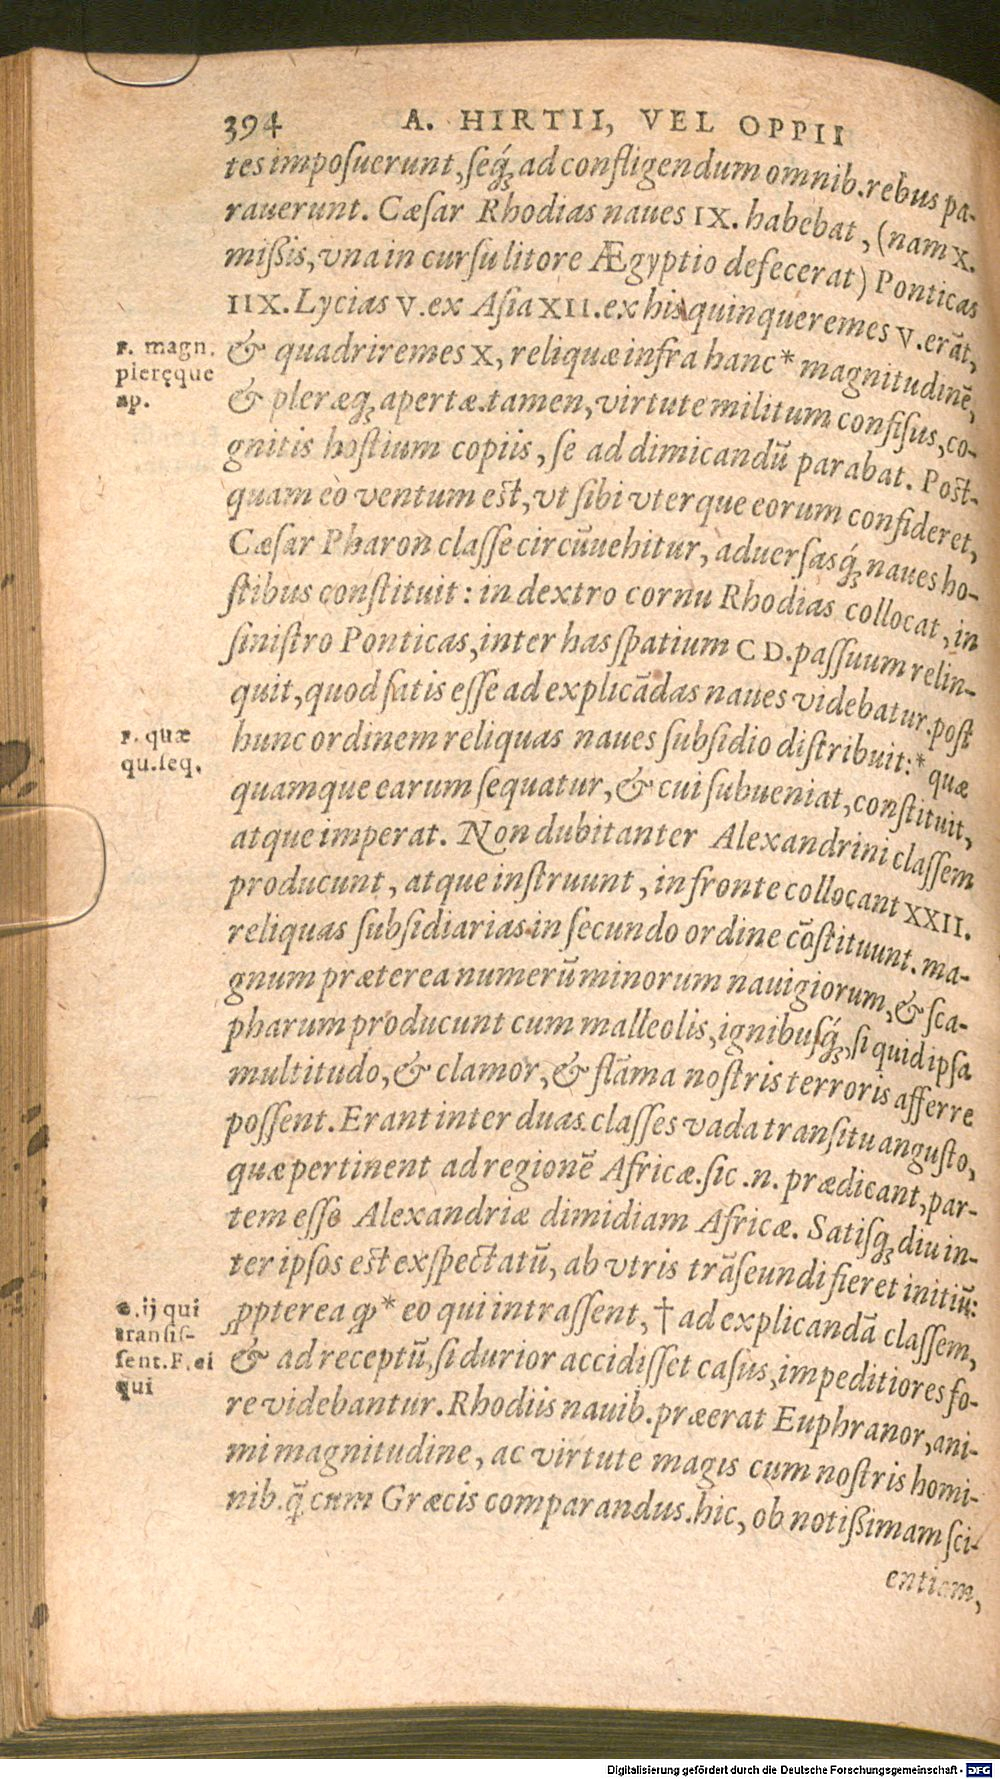 394 A. HIRTII, VEL OPPII
tes imposuerunt, seq́; ad confligendum omnib. rebus pa-
rauerunt. Cæsar Rhodias naues IX. habebat, (nam X.
mißis, vna in cursu litore Ægyptio defecerat) Ponticas
IIX. Lycias V. ex Asia XII. ex his quinqueremes V. erāt,
& quadriremes X, reliquæ infra hanc* magnitudinē,
& pleræq; apertæ. tamen, virtute militum confisus, co-
gnitis hostium copiis, se ad dimicandū parabat. Post-
quam eo ventum est, vt sibi vterque eorum confideret,
Cæsar Pharon classe circūuehitur, aduersasq́; naues ho-
stibus constituit: in dextro cornu Rhodias collocat, in
sinistro Ponticas, inter has spatium CD. passuum relin-
quit, quod satis esse ad explicādas naues videbatur. post
hunc ordinem reliquas naues subsidio distribuit:* quæ
quamque earum sequatur, & cui subueniat, constituit,
atque imperat. Non dubitanter Alexandrini classem
producunt, atque instruunt, in fronte collocant XXII.
reliquas subsidiarias in secundo ordine cōstituunt. ma-
gnum præterea numerū minorum nauigiorum, & sca-
pharum producunt cum malleolis, ignibusq́;, si quid ipsa
multitudo, & clamor, & flāma nostris terroris afferre
possent. Erant inter duas classes vada transitu angusto,
quæ pertinent ad regionē Africæ. sic .n. prædicant, par-
tem esse Alexandriæ dimidiam Africæ. Satisq; diu in-
ter ipsos est exspectatū, ab vtris trāseundi fieret initiū:
ꝓpterea ꝙ* eo qui intrassent, † ad explicandā classem,
& ad receptū, si durior accidisset casus, impeditiores fo-
re videbantur. Rhodiis nauib. præerat Euphranor, ani-
mi magnitudine, ac virtute magis cum nostris homi-
nib. q̄̃ cum Græcis comparandus. hic, ob notißimam sci-
entiam,
F. magn.
pleręque
ap.
F. quæ
qu. seq.
e. ij qui
transis-
sent. F. ei
qui
Digitalisierung gefördert durch die Deutsche Forschungsgemeinschaft - DFG